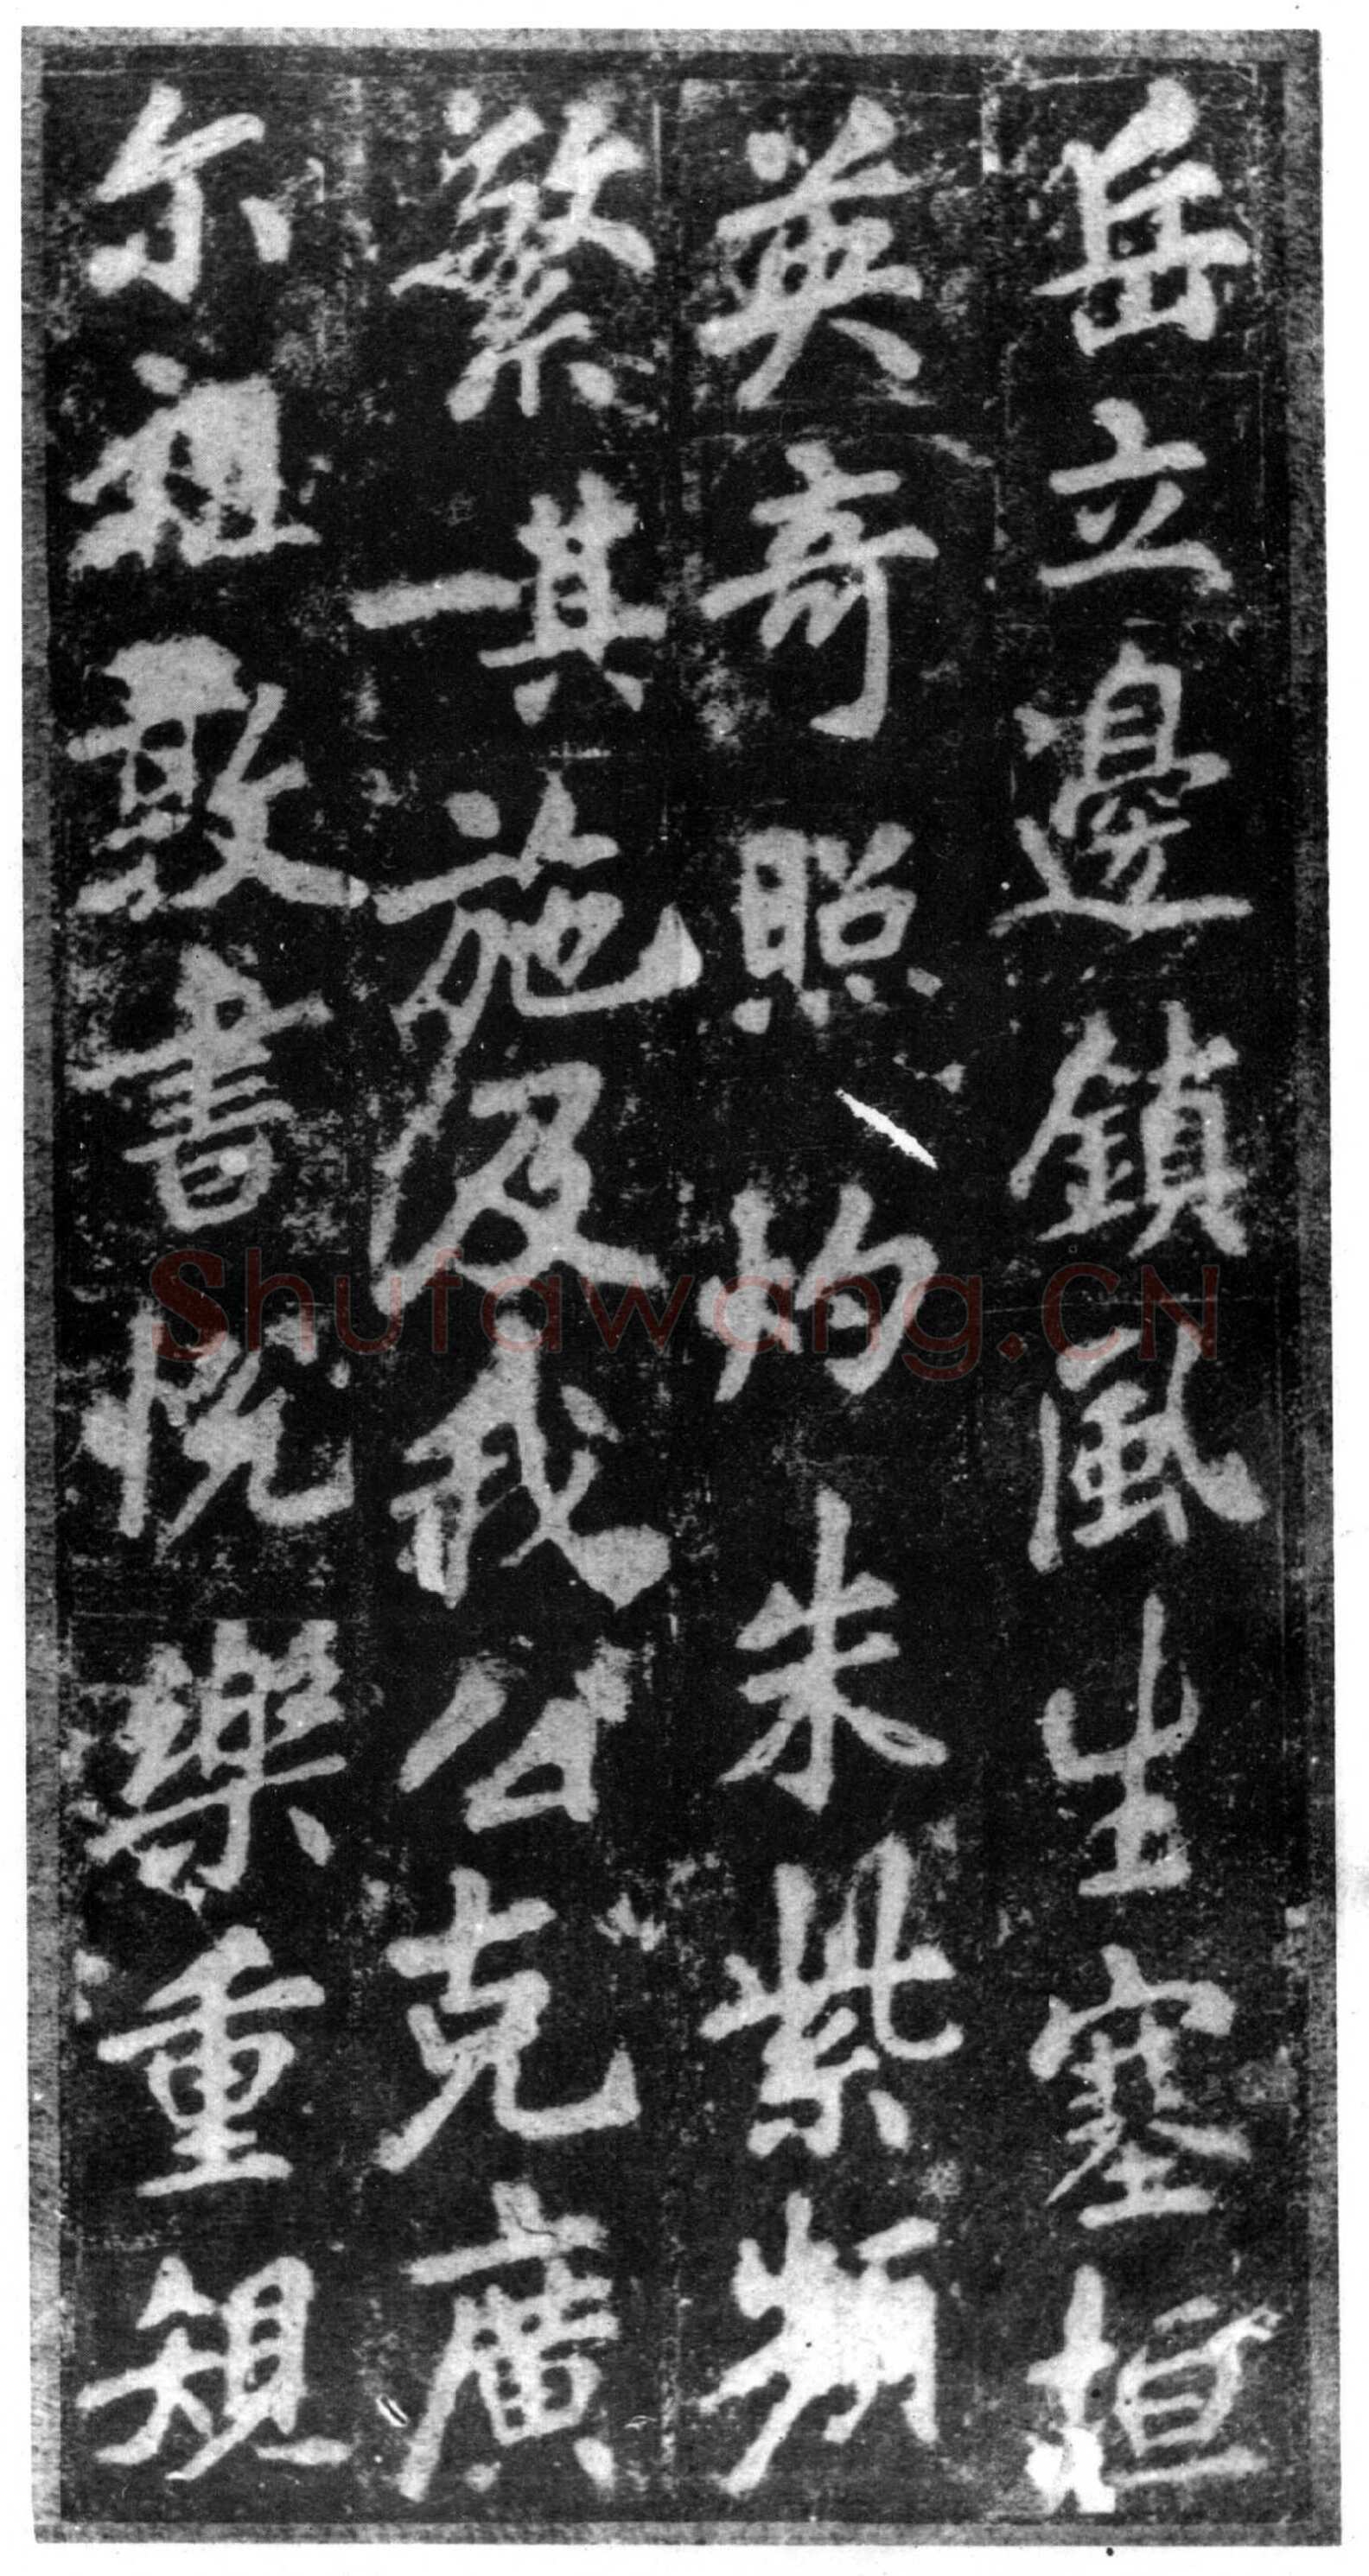 岳立邊鎮風生塞垣
英奇照灼朱紫頻
繁其一施及我公克廣
尔祖敦書悅樂重規
Shufawang.CN